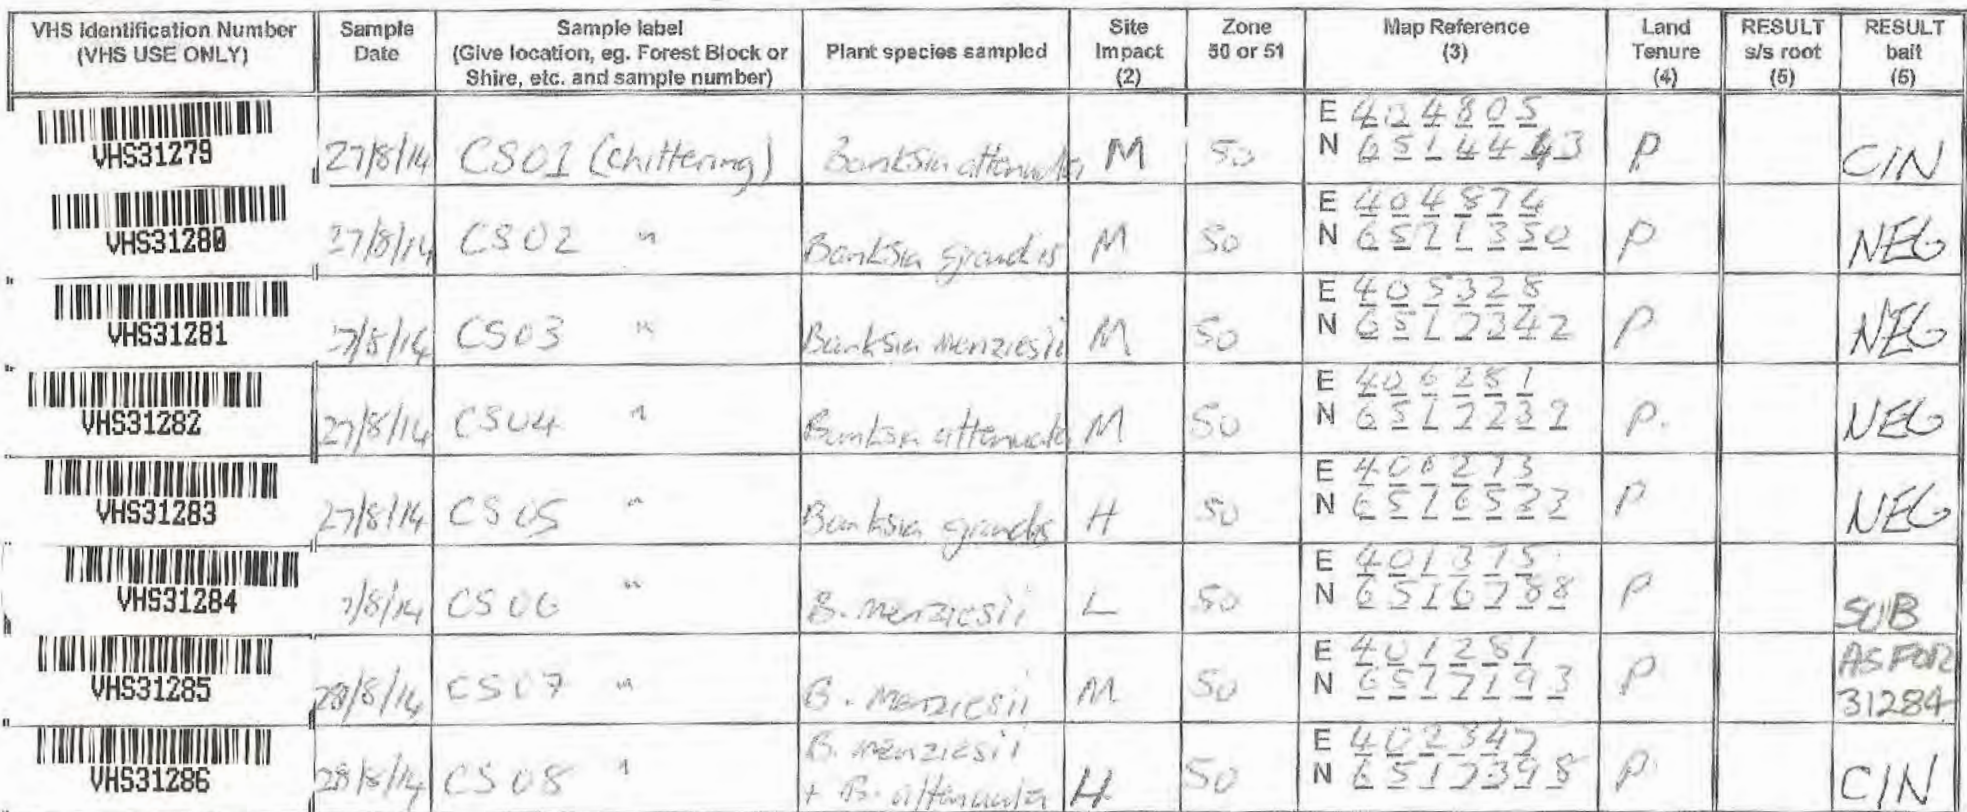 VHS Identification Number (VHS USE ONLY) | Sample Date | Sample label (Give location, eg. Forest Block or Shire, etc. and sample number) | Plant species sampled | Site Impact (2) | Zone 50 or 51 | Map Reference (3) | Land Tenure (4) | RESULT s/s root (5) | RESULT bait (5)
VHS31279 | 27/8/14 | CS01 (Chittering) | Banksia attenuata | M | 50 | E 404805 N | P | | CIN
VHS31280 | 27/8/14 | CS02 " | Banksia grandis | M | 50 | E 404874 N | P | | NEG
VHS31281 | 27/8/14 | CS03 " | Banksia menziesii | M | 50 | E 405328 N 6517342 | P | | NEG
VHS31282 | 27/8/14 | CS04 " | Banksia attenuata | M | 50 | E 406281 N 6517232 | P. | | NEG
VHS31283 | 27/8/14 | CS05 " | Banksia grandis | H | 50 | E 406273 N 6516533 | P | | NEG
VHS31284 | 7/8/14 | CS06 " | B. menziesii | L | 50 | E 401375 N 6516788 | P | | SUB
VHS31285 | 28/8/14 | CS07 " | B. menziesii | M | 50 | E 401281 N 6517193 | P | | AS FOR 31284
VHS31286 | 28/8/14 | CS08 " | B. menziesii + B. attenuata | H | 50 | E 402347 N 6517398 | P. | | CIN